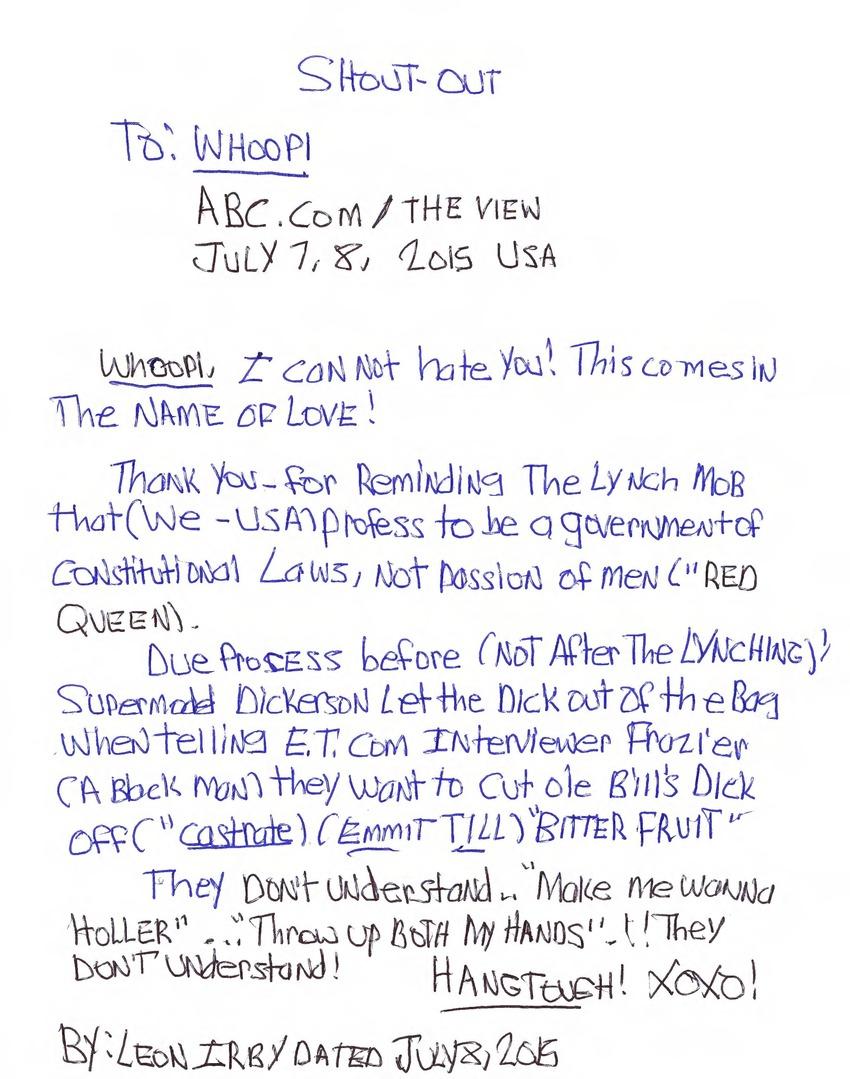 SHOUT-OUT
TO: WHOOPI
ABC.COM / THE VIEW
JULY 7, 8, 2015 USA
WHOOPI, I CAN NOT hate You! This comes IN
The NAME OF LOVE!
Thank You-for Reminding The Lynch MOB
that (We - USA) profess to be a government of
Constitutional Laws, Not passion of men ("RED
QUEEN).
Due Process before (NOT After The LYNCHING)!
Supermodel Dickerson Let the Dick out of the Bag
When telling E.T. Com Interviewer Frazier
(A Black Man) they want to Cut ole Bill's Dick
OFF ("castrate) (EMMIT TILL) "BITTER FRUIT"
They Don't Understand.. "Make me wanna
HOLLER" ... "Throw up BOTH MY HANDS"..!! They
DON'T Understand! HANGTOUGH! XOXO!
BY: LEON IRBY DATED JULY 8, 2015